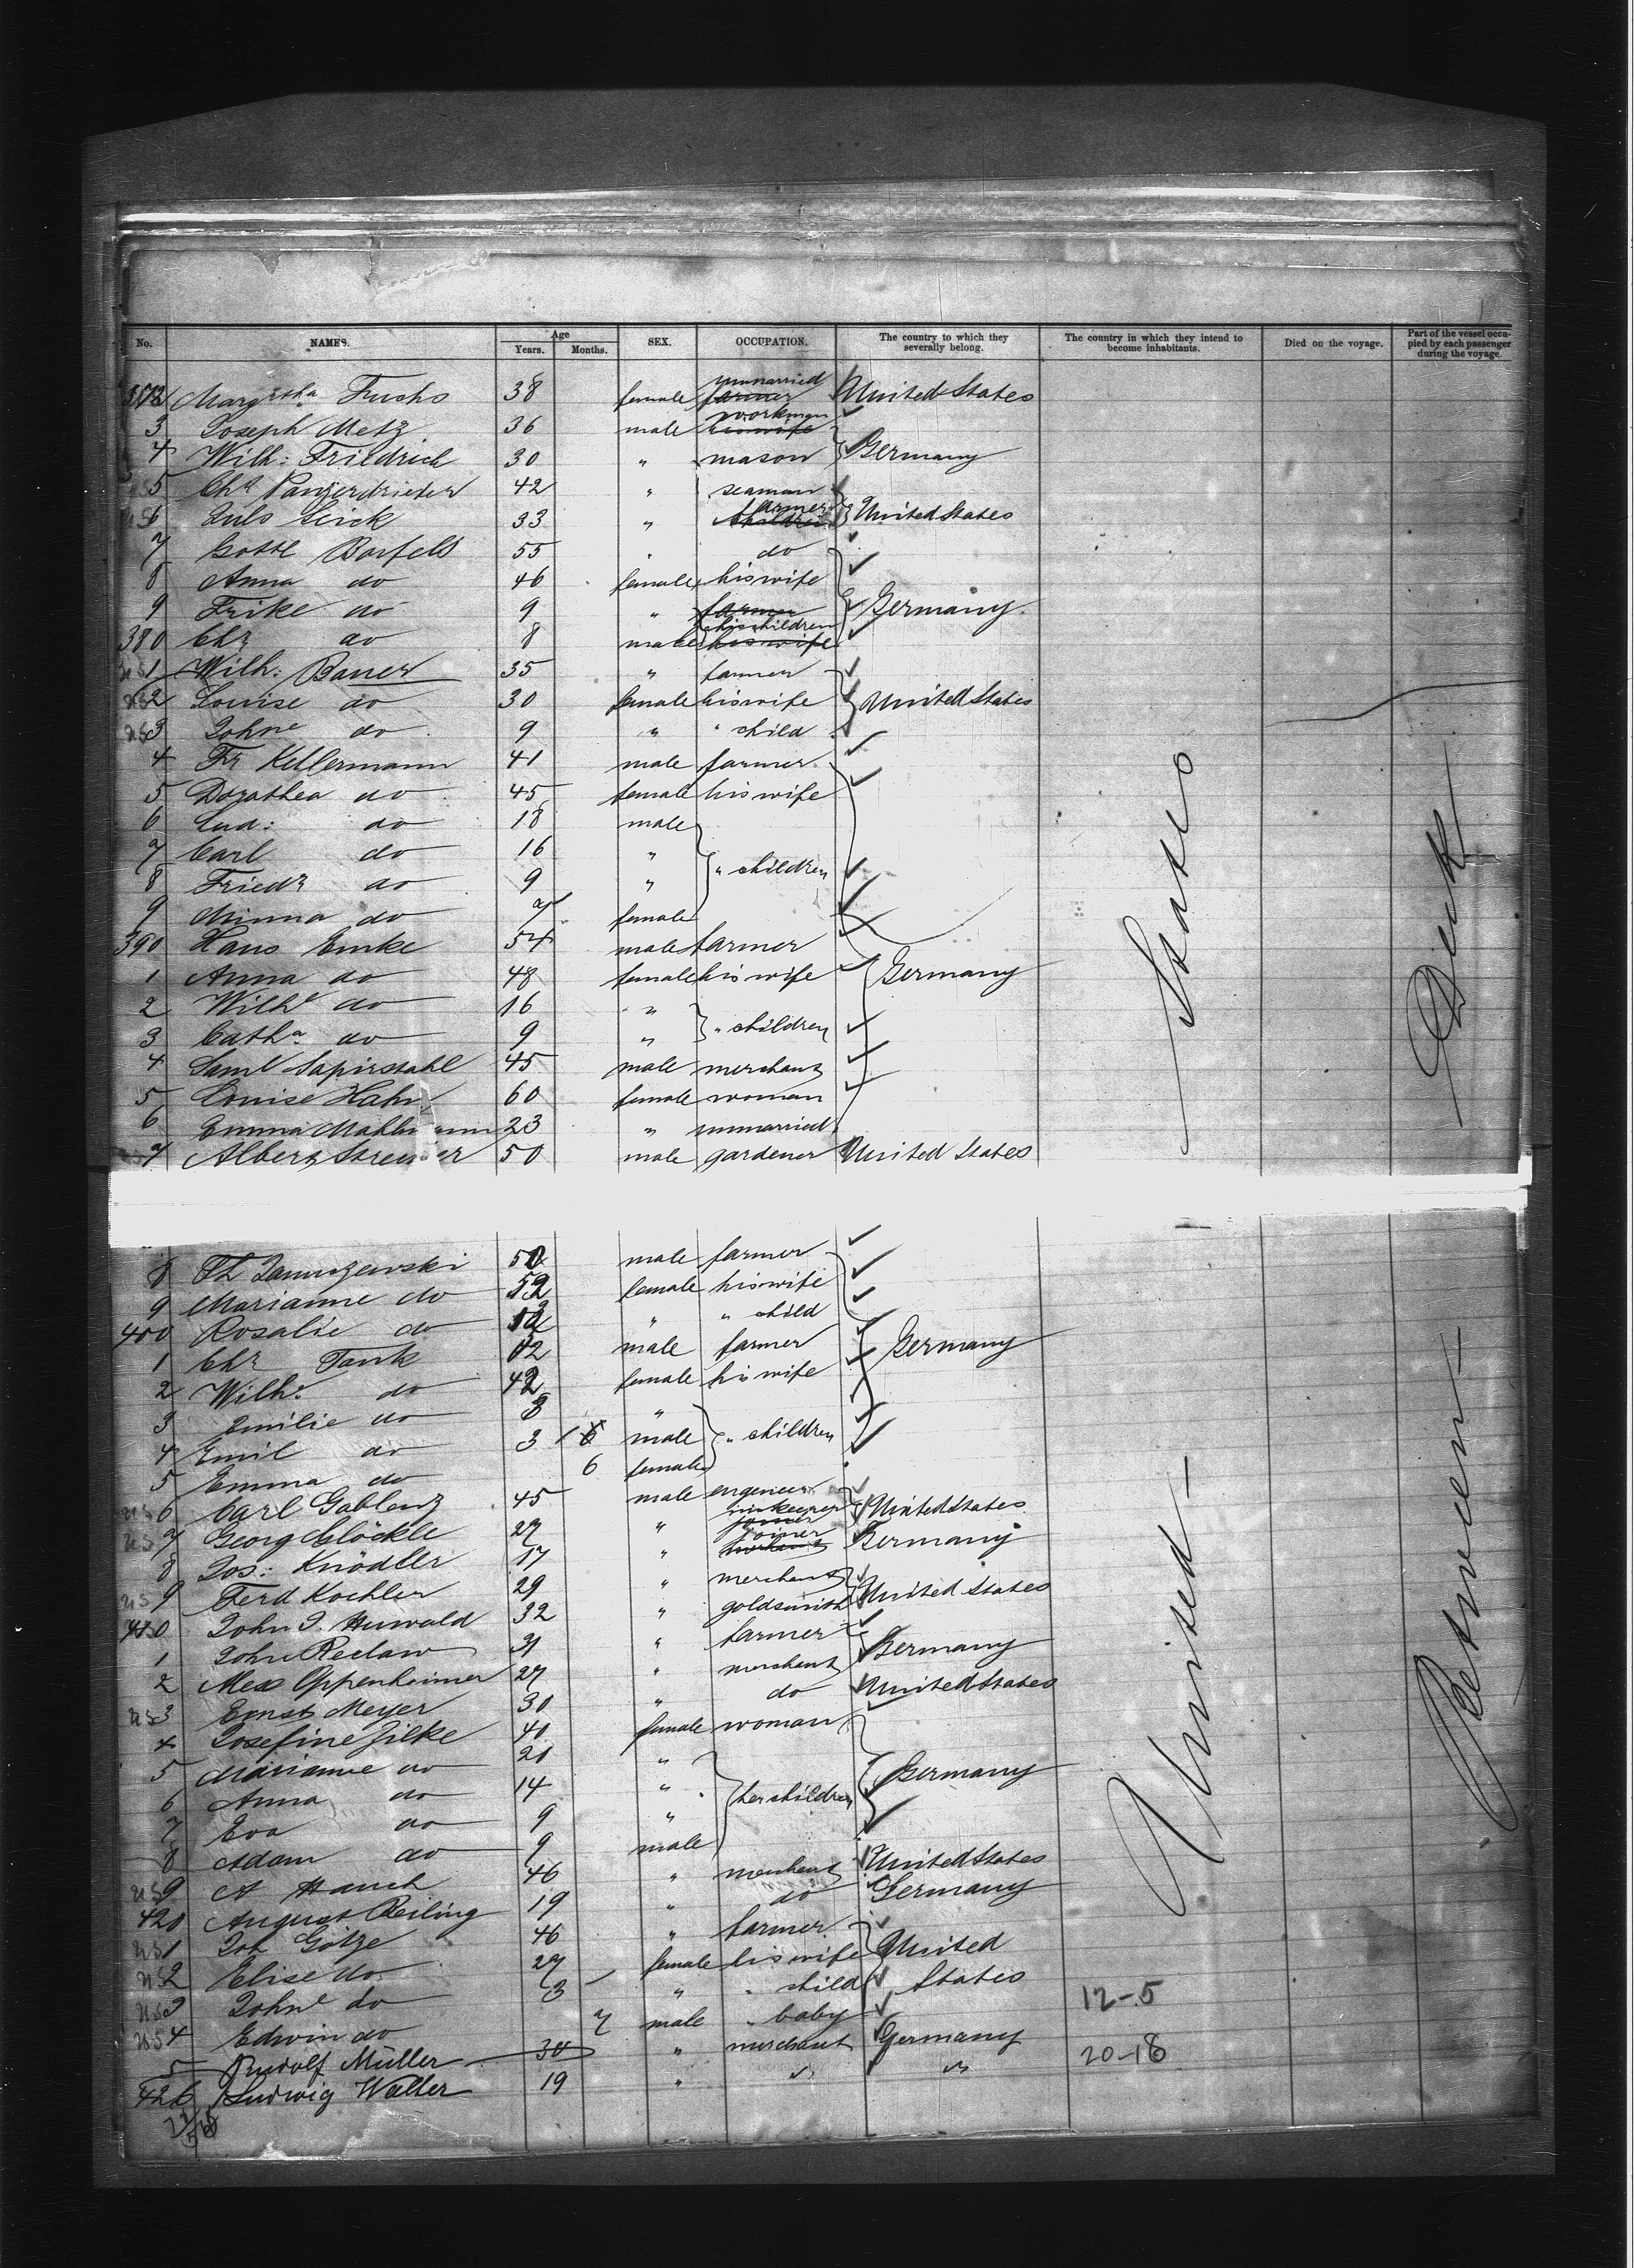 No. NAMES. Age Years. Months. SEX. OCCUPATION. The country to which they severally belong. The country in which they intend to become inhabitants. Died on the voyage. Part of the vessel occupied by each passenger during the voyage.
372 Margretha Fuchs 38 female unmarried United States
3 Joseph Metz 36 male workman
4 Wilh: Friedrich 30 " mason Germany
5 Cha 42 " seaman
6 Juls 33 " farmer United States
7 Gottl Barfels 55 " do
8 Anna do 46 female his wife
9 Frike do 9 " Germany
380 Chr do 8 male his children
1 Wilh: Bauer 35 " farmer
2 Louise do 30 female his wife United States
3 Johne do 9 " " child
4 Fr Kellermann 41 male farmer
5 Dorothea do 45 female his wife
6 Lud: do 18 male
7 Carl do 16 "
8 Friedr do 9 " " children
9 Minna do 7 female
390 Hans Emke 54 male farmer
1 Anna do 48 female his wife Germany
2 Wilhe do 16 "
3 Catha do 9 " " children
4 Saml Sapirstahl 45 male merchant
5 Louise Hahn 60 female woman
6 Emma 23 " unmarried
7 Albert 50 male gardener United States
States
Deck
8 50 male farmer
9 Marianne do 52 female his wife
400 Rosalie do " " child
1 Chr Tank 42 male farmer Germany
2 Wilhe do 42 female his wife
3 Emilie do 8 "
4 Emil do 3 male " children
5 Emma do 6 female
6 Carl Gablenz 45 male engeneer
7 Georg Glöckle 27 " United States
8 Jos: Knödler 17 " joiner Germany
9 Ferd Kochler 29 " merchant
410 John J. Huwald 32 " goldsmith United States
1 John Reclaw 31 " farmer
2 Max Oppenheimer 27 " merchant Germany
3 Ernst Meyer 30 " do United States
4 Josefine Jilke 40 female woman
5 Marianne do 21 "
6 Anna do 14 " her children Germany
7 Eva do 9 "
8 Adam do 9 male
9 A Hauch 46 " merchant United States
420 August Reiling 19 " do Germany
1 Joh Götze 46 " farmer
2 Elise do 27 female his wife United
3 Johne do 3 " " child States
4 Edwin do 7 male " baby
5 Rudolf Müller 30 " merchant Germany
426 Ludwig Waller 19 " " "
United
Between
12-5
20-18